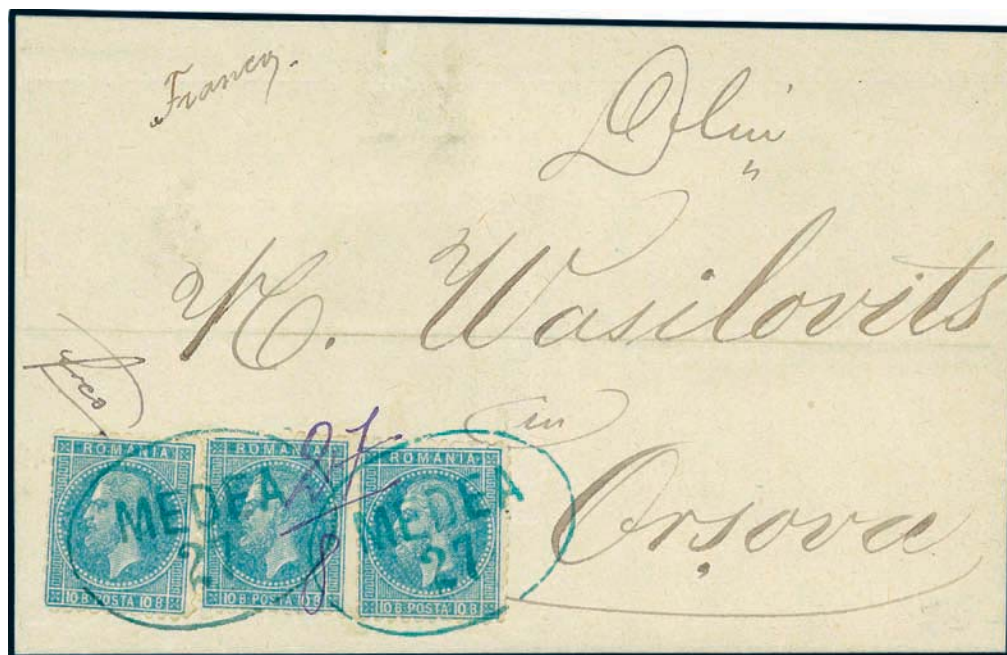 Franco.
D-lui
N. Wasilovits
in
Orșova
franco
27
8
ROMANIA
10 B POSTA 10 B
ROMANIA
10 B POSTA 10 B
ROMANIA
10 B POSTA 10 B
MEDEA
27
MEDEA
27